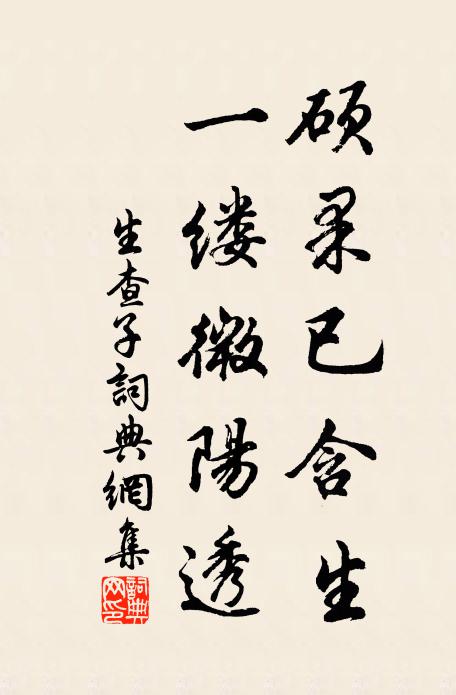 硕果已含生
一缕微陽透
生查子詞典網集
詞典网印